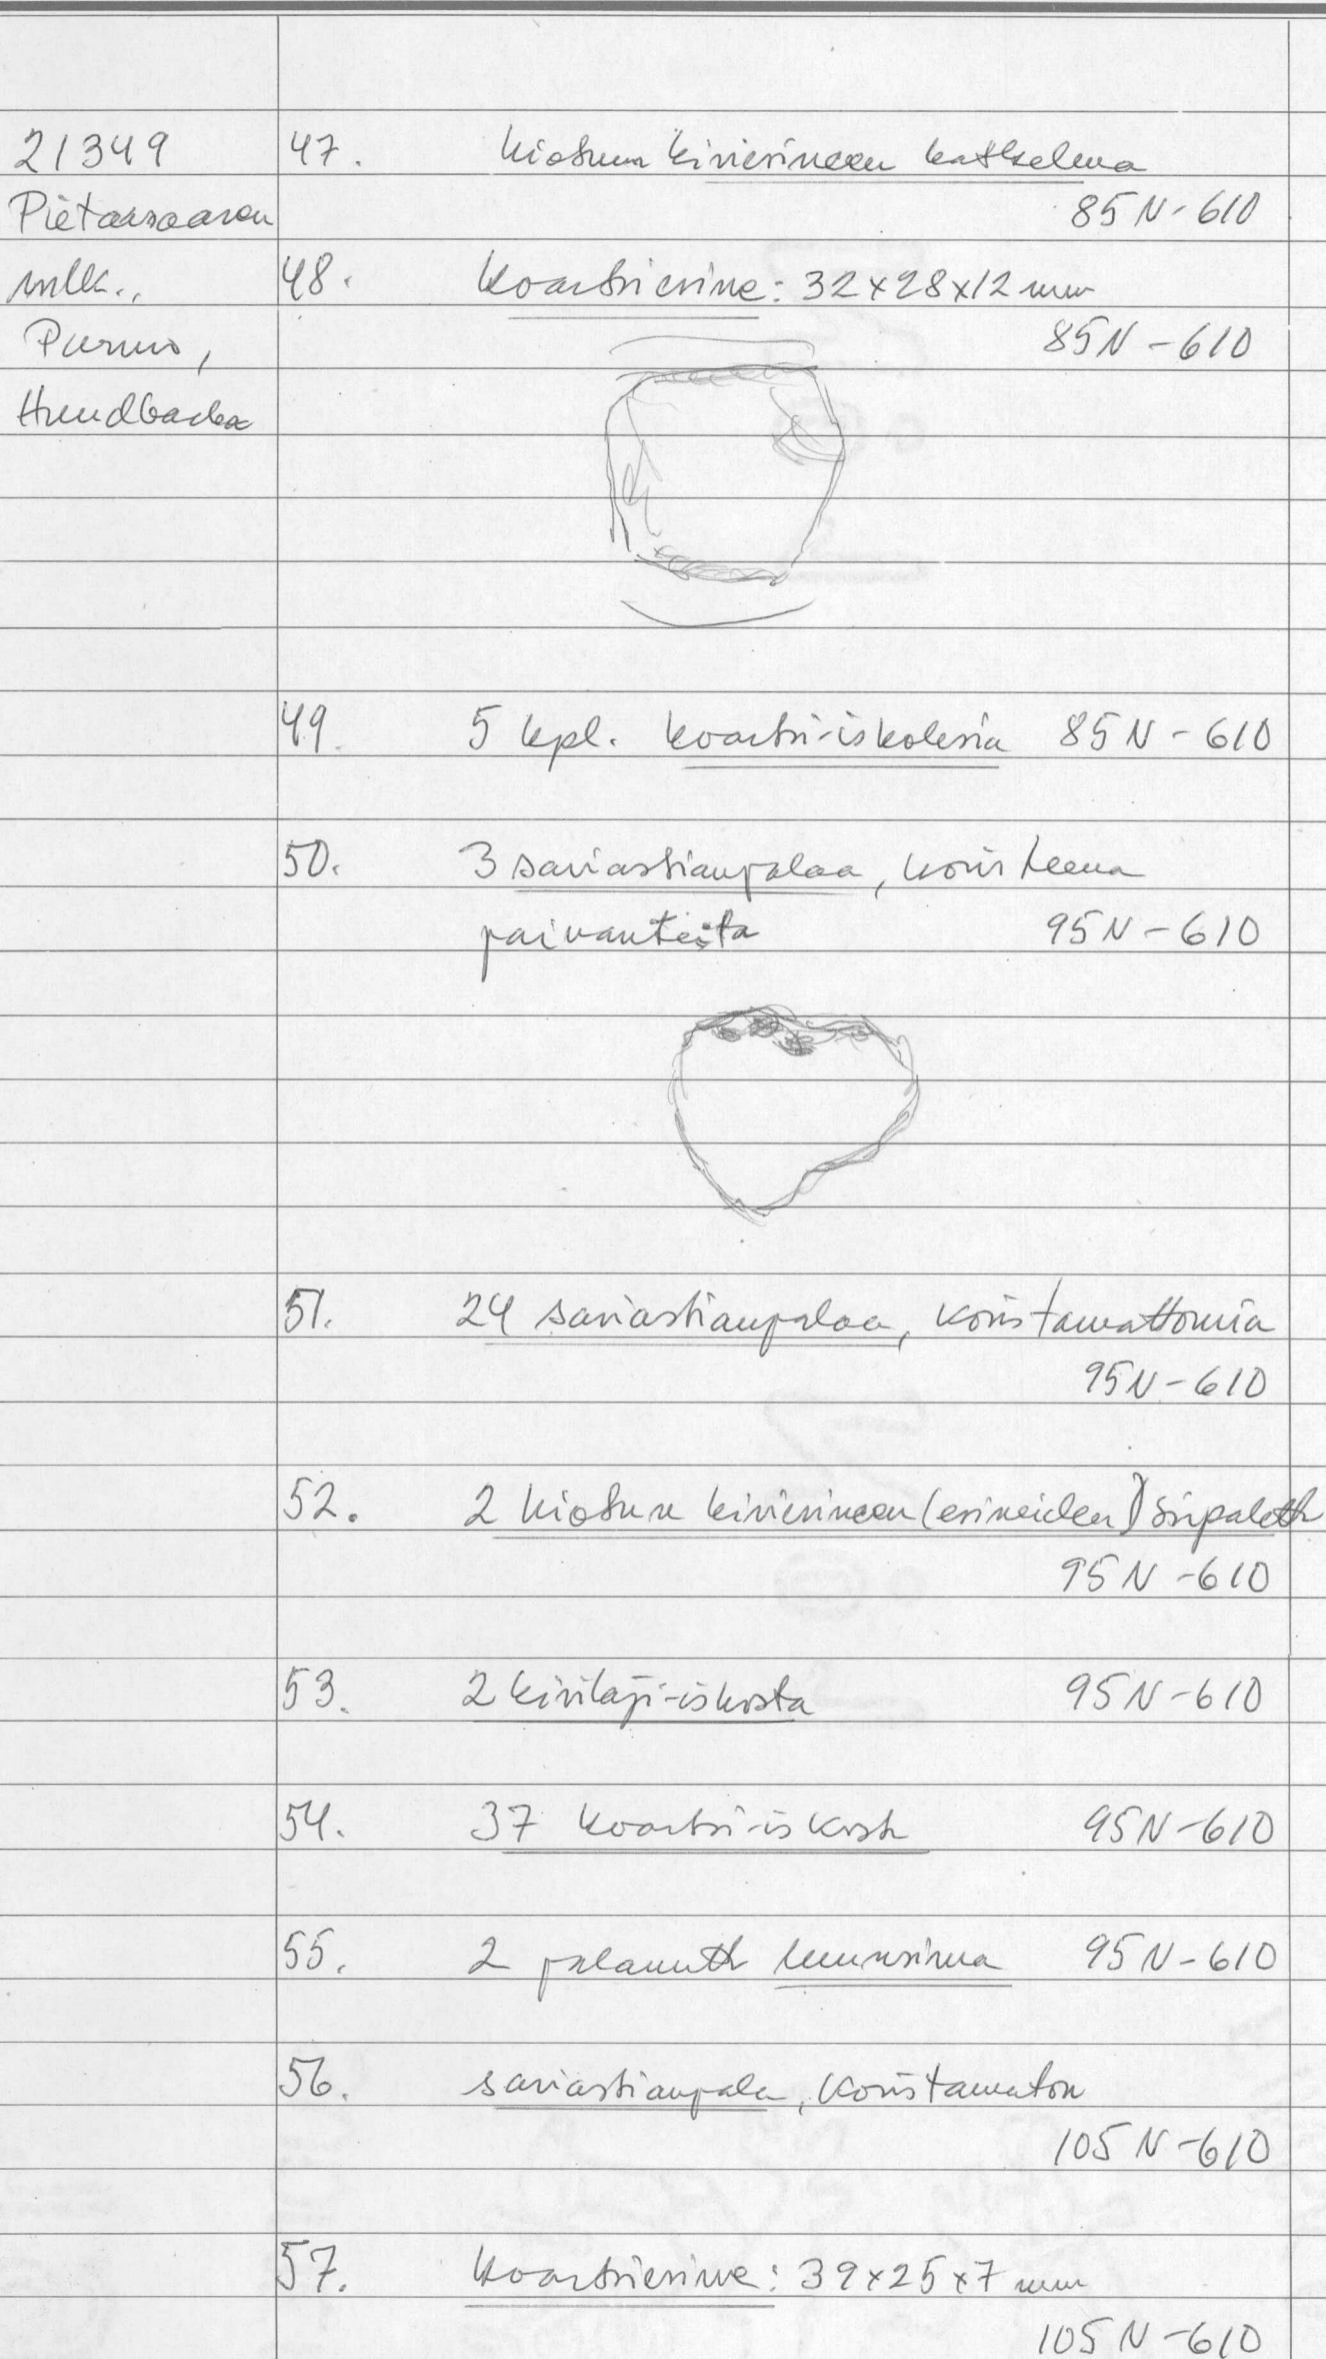 21349 47. hiotun kiviesineen katkelma
Pietarsaaren 85 N-610
mlk., 48. Kvartsiesine: 32x28x12 mm
Purmo, 85N-610
Hundbacka
49. 5 kpl. kvartsi-iskoksia 85 N-610
50. 3 saviastianpalaa, koristeena
painanteita 95N-610
51. 24 saviastianpalaa, koristamattomia
95N-610
52. 2 hiotun kiviesineen (esineiden) sirpaletta
95 N-610
53. 2 kivilaji-iskosta 95N-610
54. 37 kvartsi-iskosta 95N-610
55. 2 palanutta luunsirua 95 N-610
56. saviastianpala, koristamaton
105 N-610
57. Kvartsiesine: 39x25x7 mm
105 N-610